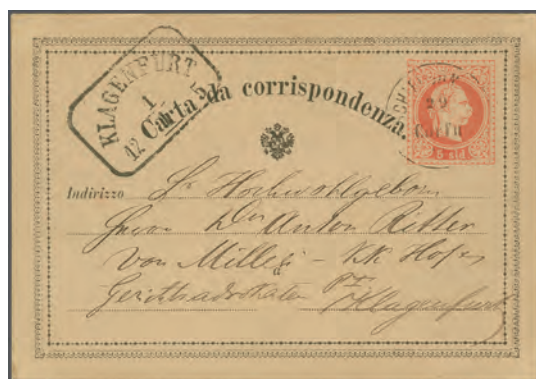 KLAGENFURT
1
12 5
Carta da corrispondenza.
29
5 sld
Indirizzo Sr Hochwohlgeborn
Herrn Dr Anton Ritter
von Millesi - KK Hof u
Gerichtsadvokaten
Klagenfurt